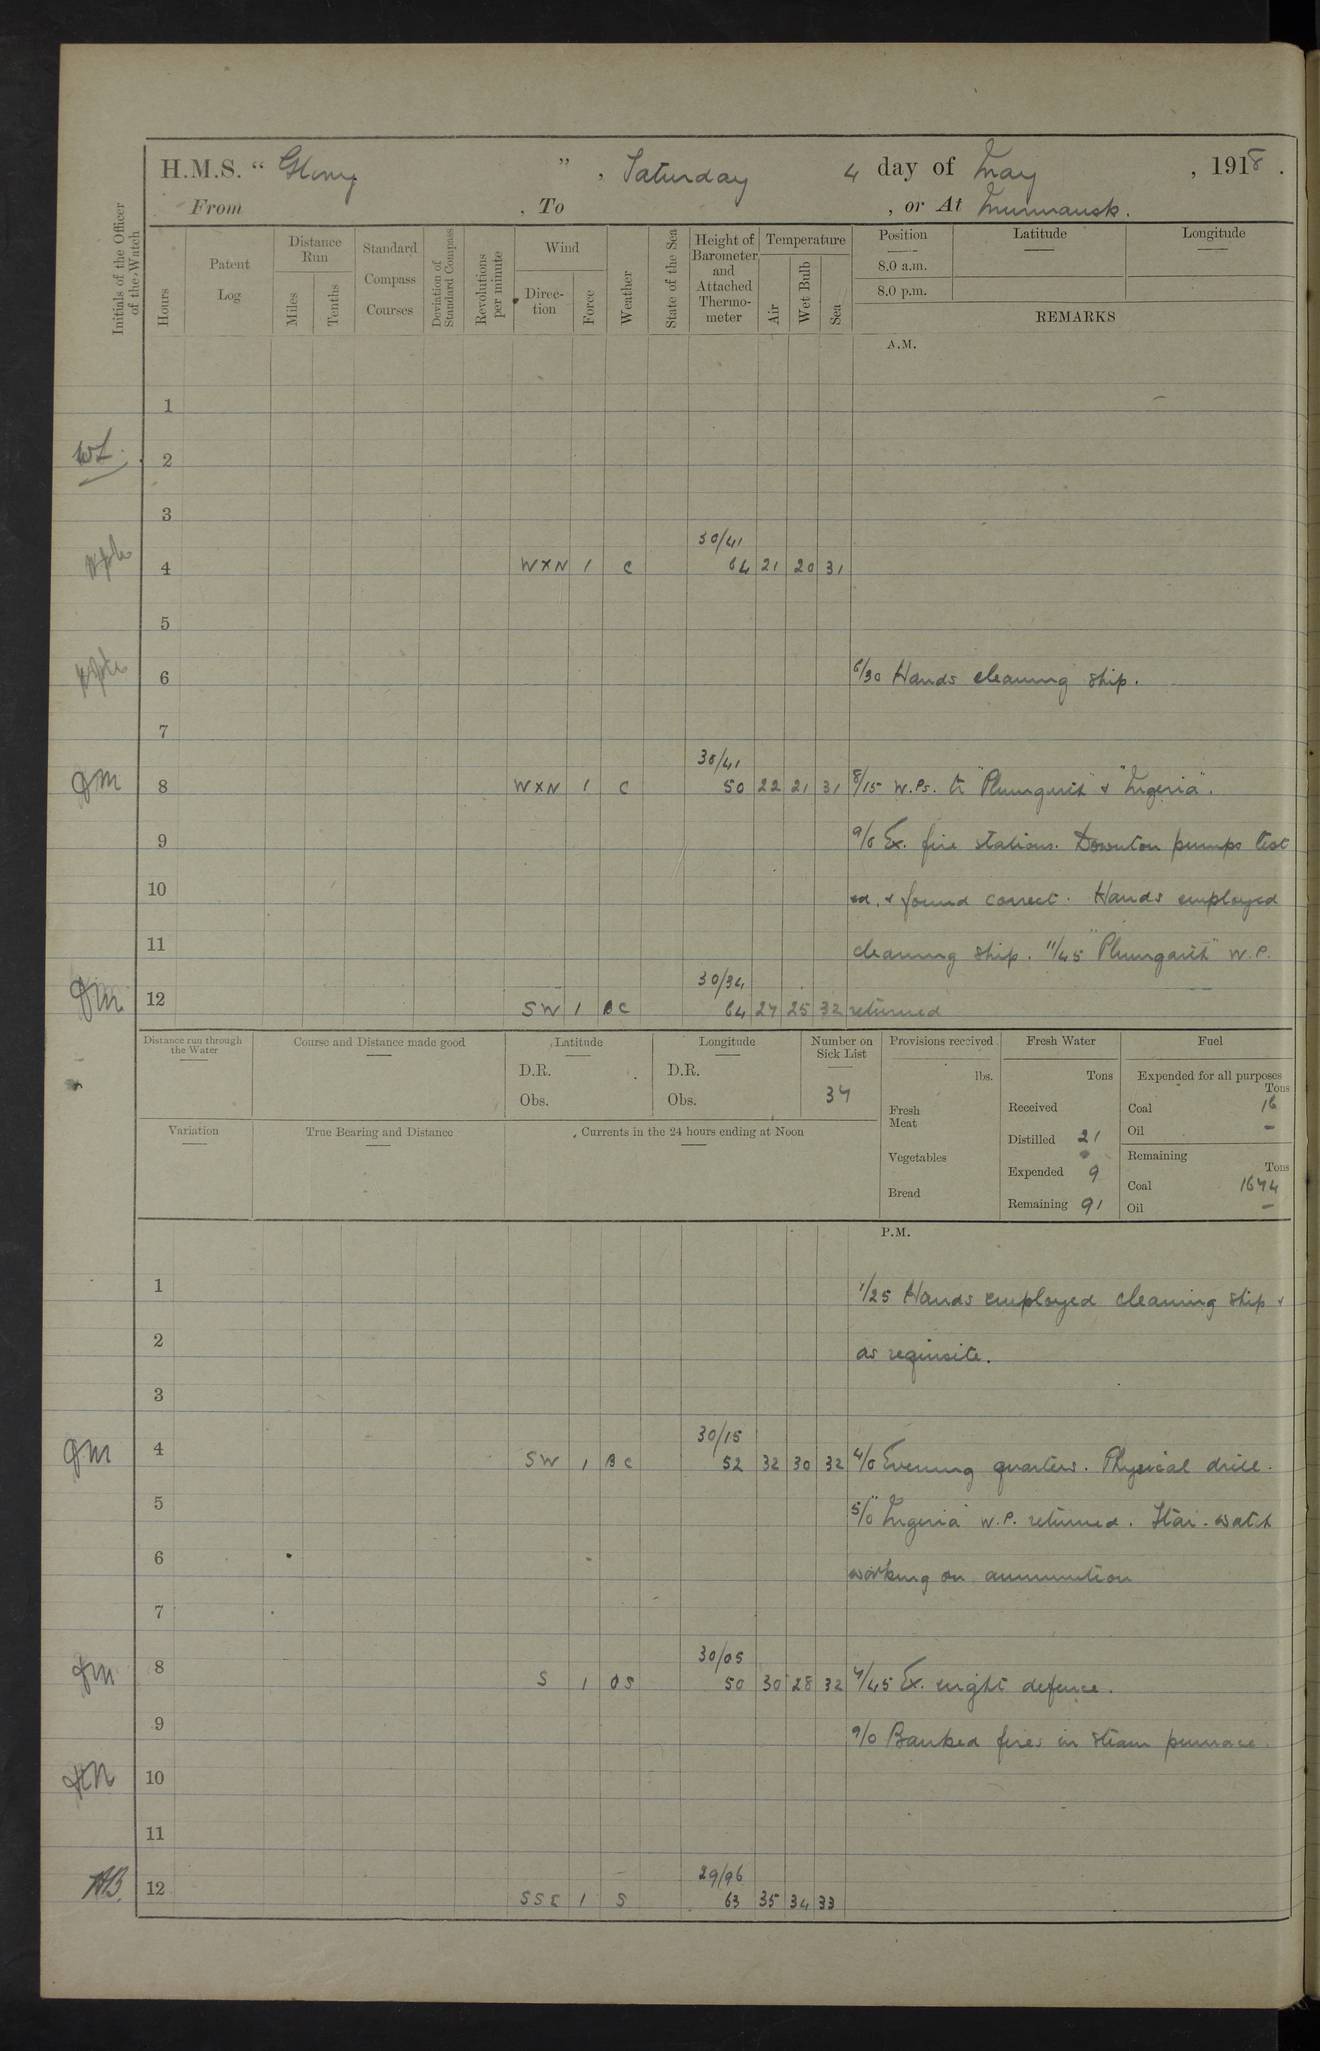 H.M.S. " Glory ", Saturday 4 day of May, 1918.
From , To , or At Murmansk.
Initials of the Officer of the Watch
Hours
Patent Log
Distance Run
Miles
Tenths
Standard Compass Courses
Deviation of Standard Compass
Revolutions per minute
Wind
Direction
Force
Weather
State of the Sea
Height of Barometer and Attached Thermometer
Temperature
Air
Wet Bulb
Sea
Position
8.0 a.m.
8.0 p.m.
Latitude
Longitude
REMARKS
A.M.
1
2
3
30/41
4 WXN 1 C 64 21 20 31
5
6 6/30 Hands cleaning ship.
7
30/41
8 WXN 1 C 50 22 21 31 8/15 W.Ps. to "Plumgarth" & "Nigeria".
9 9/0 Ex. fire stations. Downton pumps test
10 ed, & found correct. Hands employed
11 cleaning ship. 11/45 "Plumgarth" W.P.
30/34
12 SW 1 BC 64 27 25 32 returned
Distance run through the Water
Course and Distance made good
Latitude
D.R.
Obs.
Longitude
D.R.
Obs.
Number on Sick List
37
Provisions received
lbs.
Fresh Meat
Vegetables
Bread
Fresh Water
Tons
Received
Distilled 21
Expended 9
Remaining 91
Fuel
Expended for all purposes
Tons
Coal 16
Oil –
Remaining
Tons
Coal 1674
Oil –
Variation
True Bearing and Distance
Currents in the 24 hours ending at Noon
P.M.
1 1/25 Hands employed cleaning ship &
2 as requisite.
3
30/15
4 SW 1 BC 52 32 30 32 4/0 Evening quarters. Physical drill.
5 5/0 "Nigeria" W.P. returned. Star. watch
6 working on ammunition
7
30/05
8 S 1 OS 50 30 28 32 7/45 Ex. night defence.
9 9/0 Banked fires in steam pinnace.
10
11
29/96
12 SSE 1 S 63 35 34 33